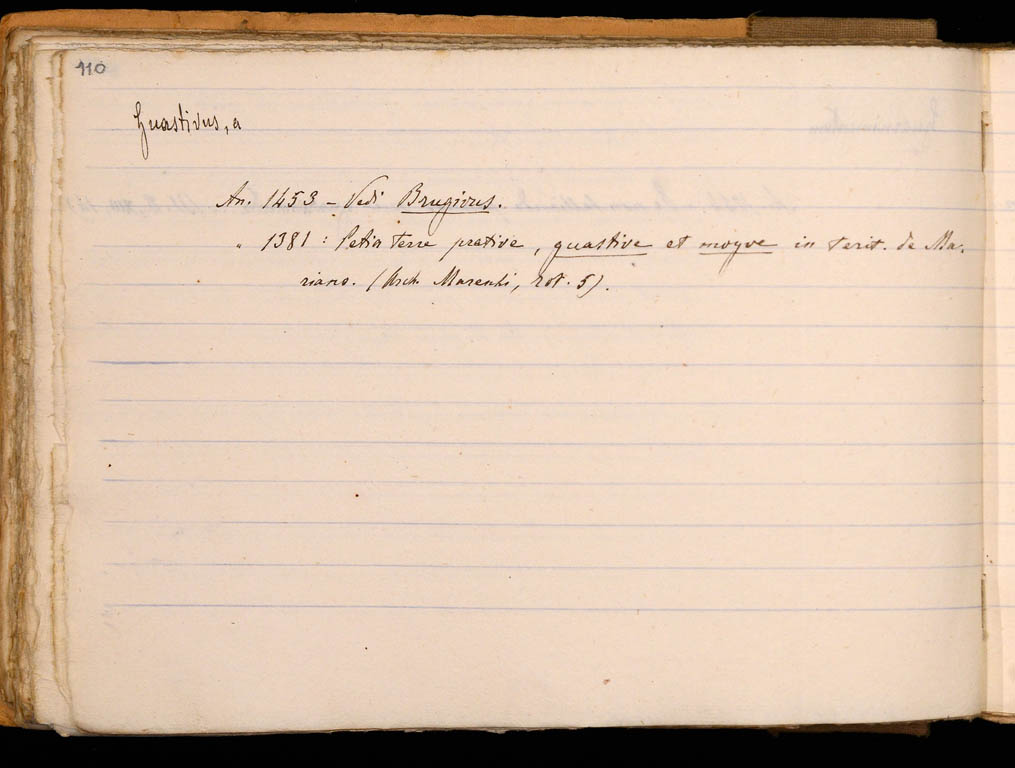 110
Guastivus, a
An. 1453 - Vedi Brugivus.
" 1381 : Petia terre prative, guastive et moyve in terit. de Ma-
riano. (Arch. Marenti, rot. 5).